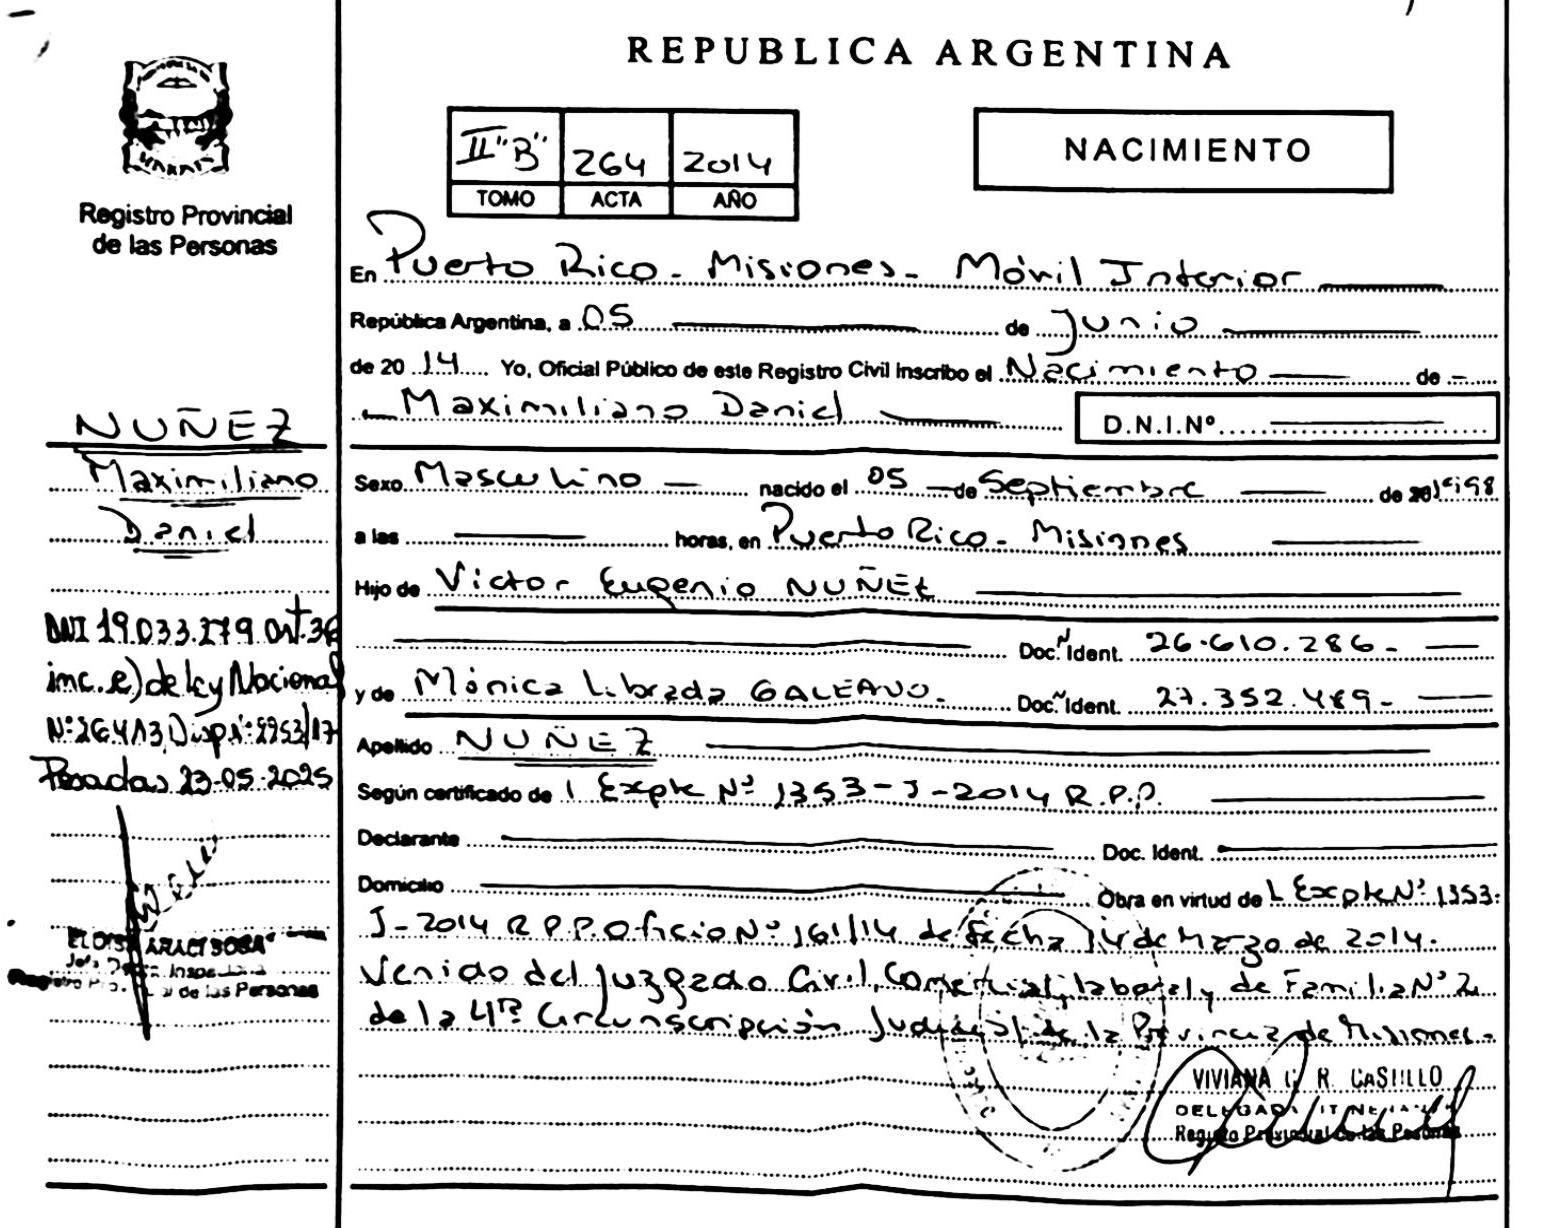 REPUBLICA ARGENTINA
II "B" 264 2014
TOMO ACTA AÑO
NACIMIENTO
Registro Provincial
de las Personas
En Puerto Rico - Misiones - Móvil Interior
República Argentina, a 05 de Junio
de 20 14 Yo, Oficial Público de este Registro Civil inscribo el Nacimiento de
Maximiliano Daniel D.N.I.Nº
Sexo Masculino nacido el 05 de Septiembre de 1998
a las horas, en Puerto Rico - Misiones
Hijo de Victor Eugenio NUÑEZ
Doc. Ident. 26.610.286.-
y de Mónica Librada GALEANO. Doc. Ident. 27.352.489.-
Apellido NUÑEZ
Según certificado de Expte Nº 1353-J-2014 R.P.P.
Declarante Doc. Ident.
Domicilio Obra en virtud de Expte Nº 1353-
J-2014 R.P.P. Oficio Nº 161/14 de fecha 14 de Marzo de 2014.
Venido del Juzgado Civil, Comercial, laboral y de Familia Nº 2
de la 4ta Circunscripción Judicial de la Provincia de Misiones.
VIVIANA R CASTILLO
DELEGADA
Registro Provincial de las Personas
NUÑEZ
Maximiliano
Daniel
DNI 19.033.279 Art. 36
inc. e) de ley Nacional
Nº 26413 Disp. Nº
Posadas 23-05-2025
ARACI SOSA
Jefa
de las Personas